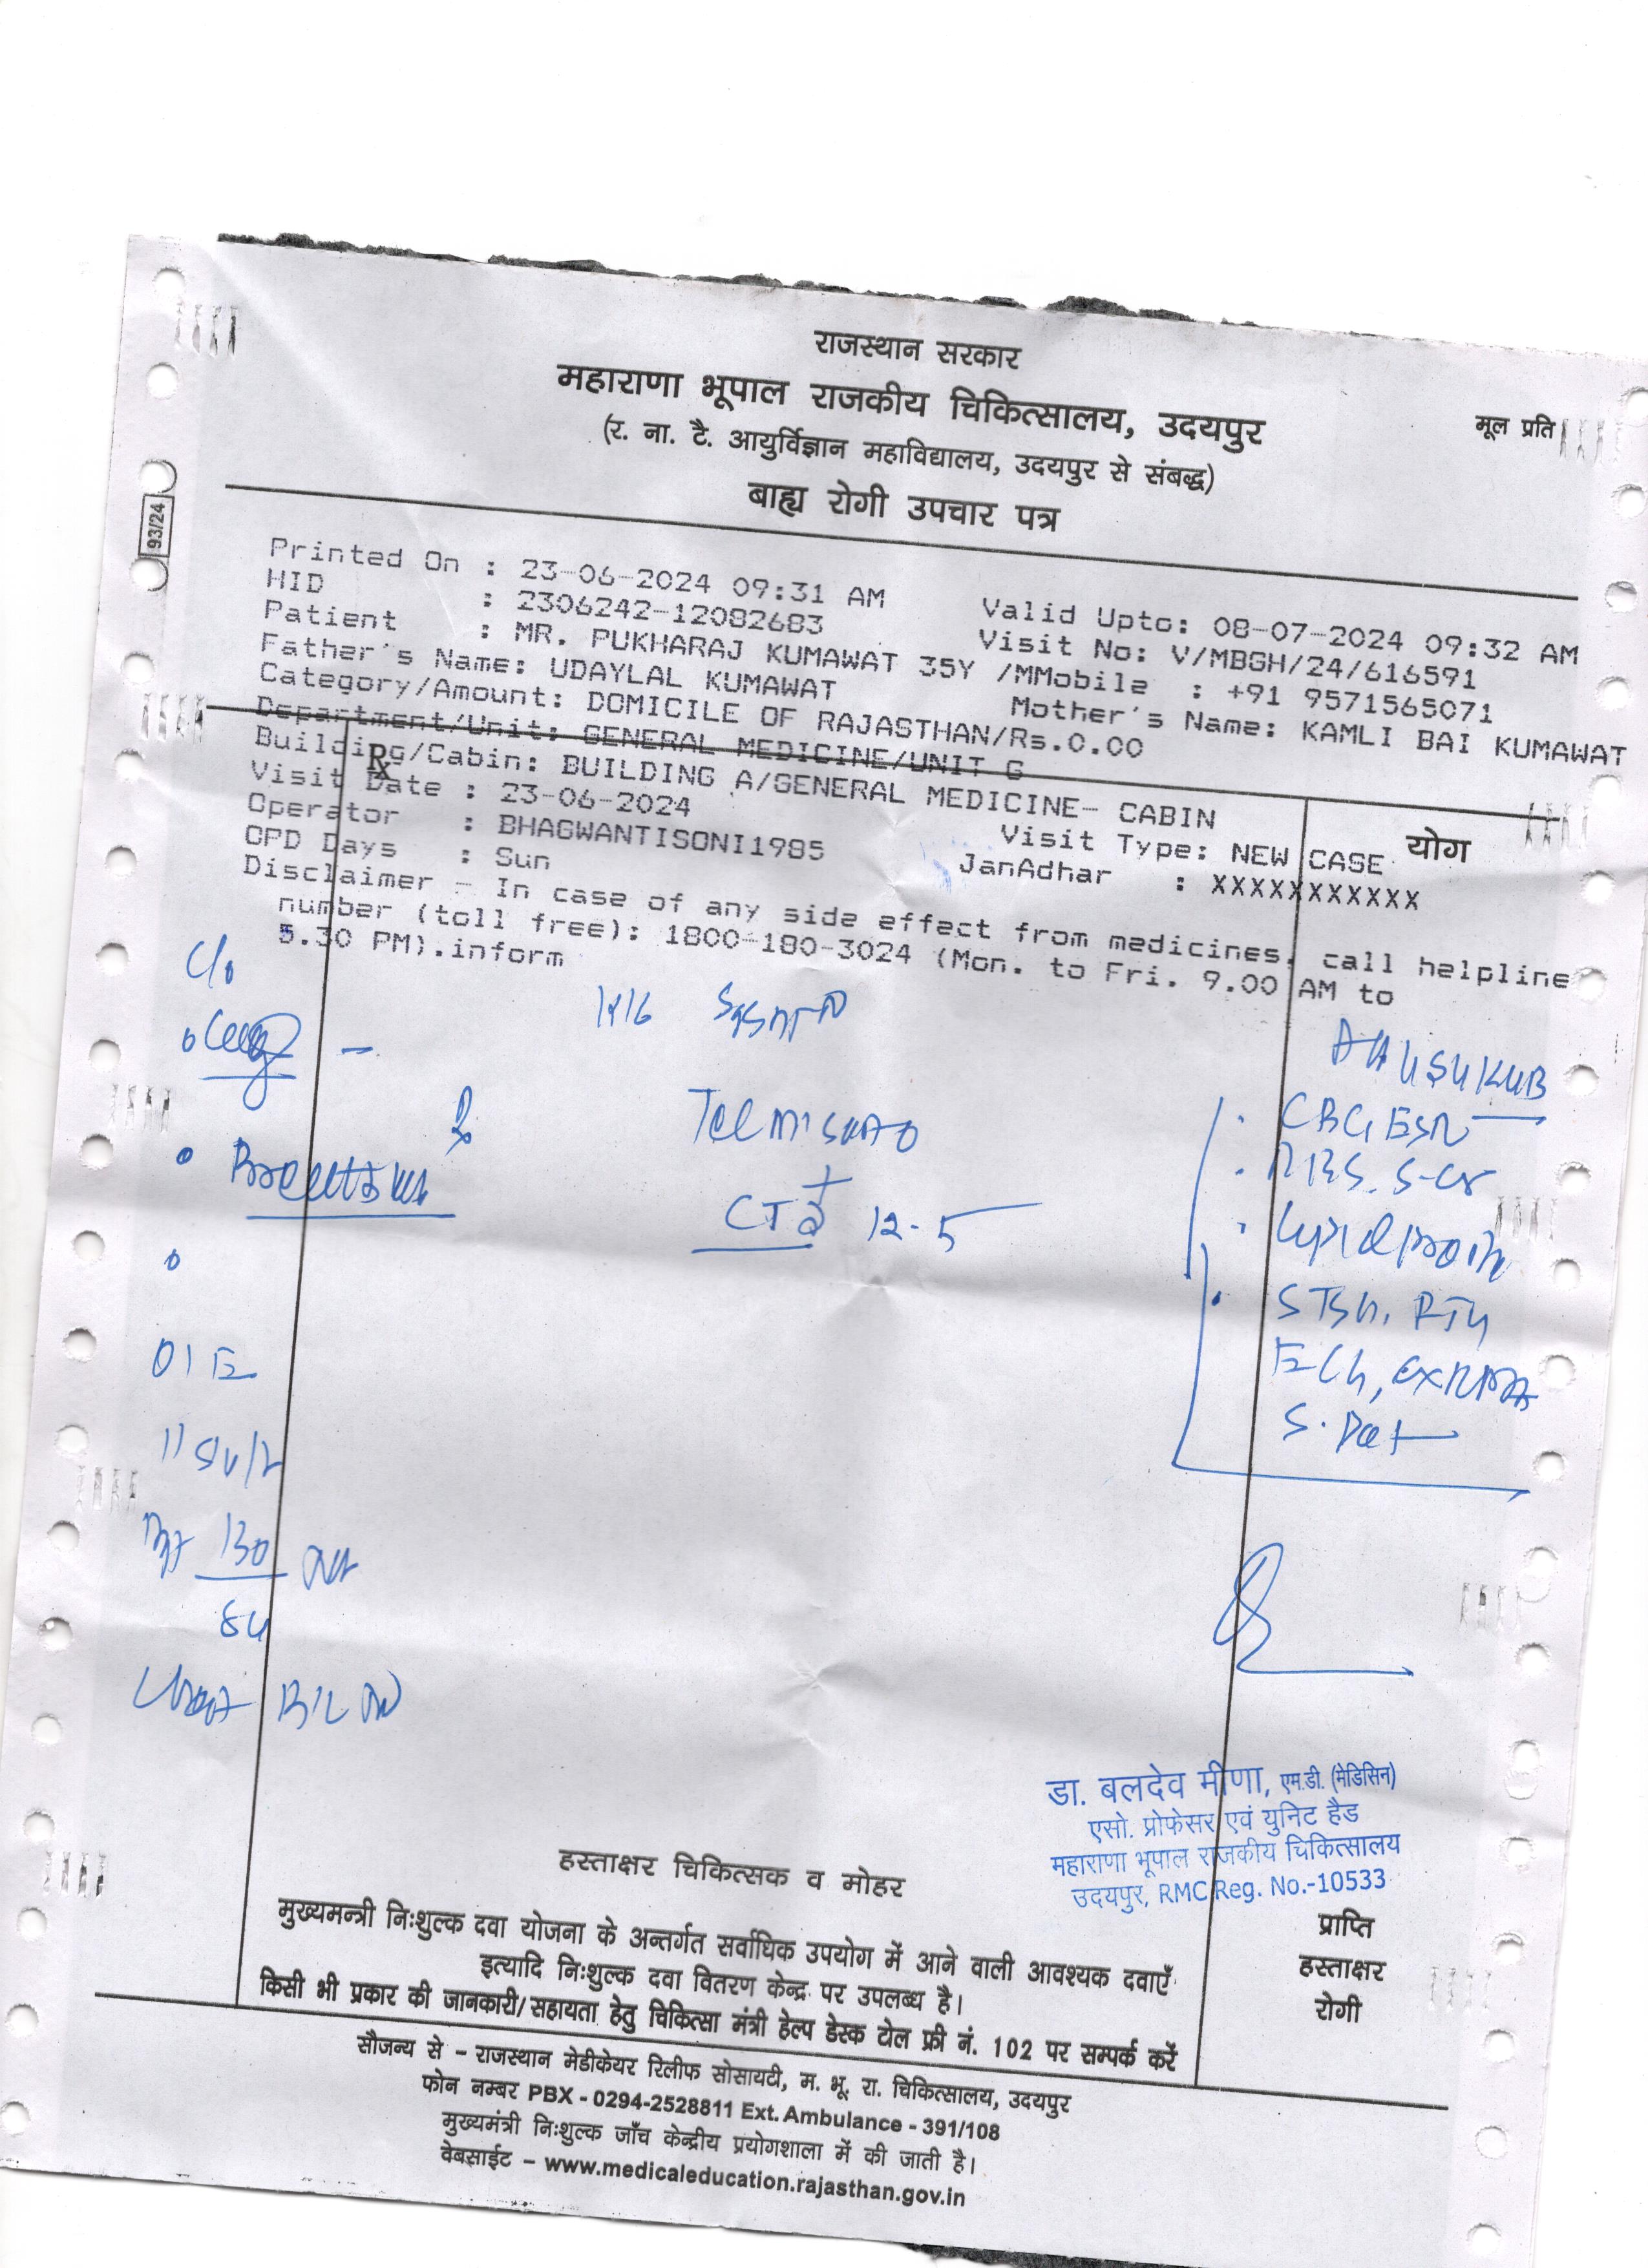 राजस्थान सरकार
महाराणा भूपाल राजकीय चिकित्सालय, उदयपुर
मूल प्रति
(र. ना. टै. आयुर्विज्ञान महाविद्यालय, उदयपुर से संबद्ध)
बाह्य रोगी उपचार पत्र
93/24
Printed On : 23-06-2024 09:31 AM Valid Upto: 08-07-2024 09:32 AM
HID : 2306242-12082683 Visit No: V/MBGH/24/616591
Patient : MR. PUKHARAJ KUMAWAT 35Y /MMobile : +91 9571565071
Father's Name: UDAYLAL KUMAWAT Mother's Name: KAMLI BAI KUMAWAT
Category/Amount: DOMICILE OF RAJASTHAN/Rs.0.00
Department/Unit: GENERAL MEDICINE/UNIT G
Rx
Building/Cabin: BUILDING A/GENERAL MEDICINE- CABIN
Visit Date : 23-06-2024 Visit Type: NEW CASE
योग
Operator : BHAGWANTISONI1985 JanAdhar : XXXXXXXXXXX
OPD Days : Sun
Disclaimer - In case of any side effect from medicines, call helpline
number (toll free): 1800-180-3024 (Mon. to Fri. 9.00 AM to
5.30 PM).inform
C/o
CBC, ESR
RBS, S-Cr
12.5
O/E
130
84
डा. बलदेव मीणा, एम.डी. (मेडिसिन)
एसो. प्रोफेसर एवं युनिट हैड
महाराणा भूपाल राजकीय चिकित्सालय
उदयपुर, RMC Reg. No.-10533
हस्ताक्षर चिकित्सक व मोहर
मुख्यमन्त्री निःशुल्क दवा योजना के अन्तर्गत सर्वाधिक उपयोग में आने वाली आवश्यक दवाएँ
इत्यादि निःशुल्क दवा वितरण केन्द्र पर उपलब्ध है।
किसी भी प्रकार की जानकारी/सहायता हेतु चिकित्सा मंत्री हेल्प डेस्क टोल फ्री नं. 102 पर सम्पर्क करें
प्राप्ति
हस्ताक्षर
रोगी
सौजन्य से – राजस्थान मेडीकेयर रिलीफ सोसायटी, म. भू. रा. चिकित्सालय, उदयपुर
फोन नम्बर PBX - 0294-2528811 Ext. Ambulance - 391/108
मुख्यमंत्री निःशुल्क जाँच केन्द्रीय प्रयोगशाला में की जाती है।
वेबसाईट – www.medicaleducation.rajasthan.gov.in